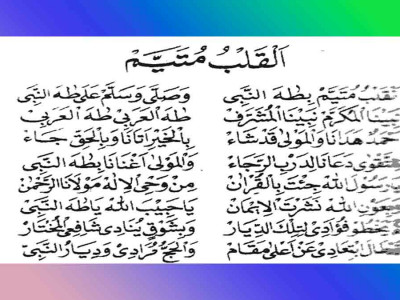 اَلْقَلْبُ مُتَيَّمٌ
مُتَيَّمٌ بِطٰهَ النَّبِى وَصَلَّى وَسَلَّمَ عَلَى طٰهَ النَّبِى
نَبِيُّنَا الْمُكَرَّمْ نَبِيُّنَا الْمُشَرَّفْ طٰهَ الْعَرَبِىْ طٰهَ الْعَرَبِىْ
هَدَانَا وَالْمَوْلَى قَدْ شَاءْ بِالْخَيْرِ اَتَانَا وَبِالْحَقِّ جَاءْ
دَعَانَا لِدَرْبِ الرَّجَاءْ وَالْمَوْلَى اَغْنَانَا بِطٰهَ النَّبِى
يَارَسُوْلَ اللهِ جِئْتَ بِالْقُرْاٰنْ مِنْ وَحْىِ الْاِلٰهْ مَوْلَانَا الرَّحْمٰنْ
اللهِ نَشَرْتَ الْاِيْمَانْ يَاحَبِيْبَ اللهْ يَاطٰهَ النَّبِى
فُؤَادِى لِتِلْكَ الدِّيَارْ وَبِشَوْقٍ يُنَادِى شَافِى الْمُخْتَارْ
بُعَادِى عَنْ اَعْلَى مَقَامْ وَالْحَجُّ مُرَادِى وَدِيَارُ النَّبِىّ